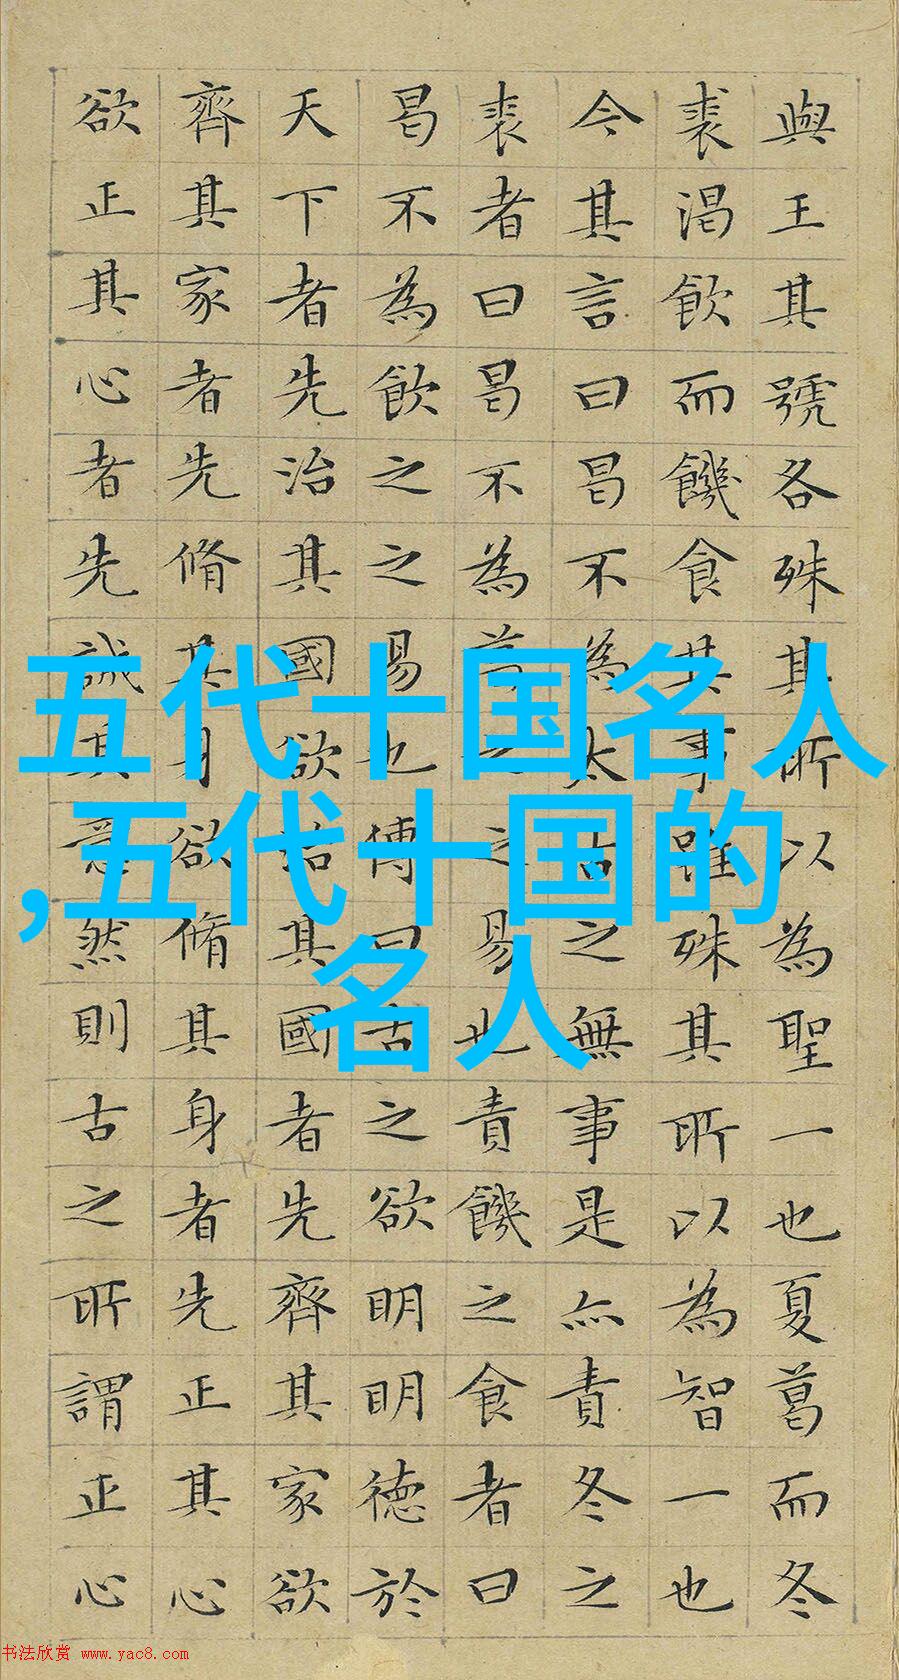 與王其號各殊其所以為聖一也夏葛而冬
裘渴飲而饑食其事雖殊其所以為智一也
今其言曰曷不為太古之無事是亦責冬之
裘者曰曷不為葛之之易也責饑之食者曰
曷不為飲之之易也傳曰古之欲明明德於
天下者先治其國欲治其國者先齊其家欲
齊其家者先脩其身欲脩其身者先正其心
欲正其心者先誠其意然則古之所謂正心
五代十国名人
,五代十国的
名人
书法欣赏 www.yac8.com